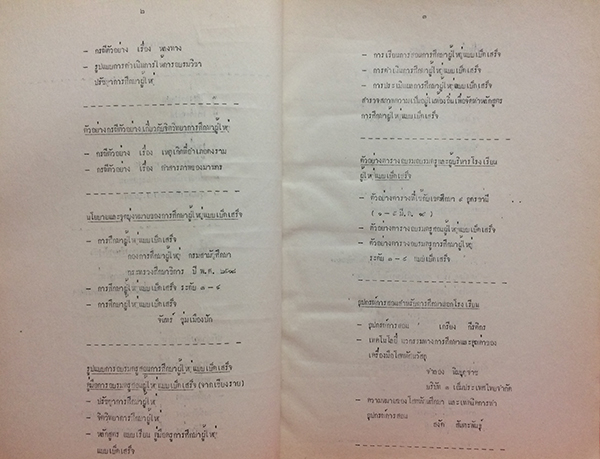 ๒
- กรณีตัวอย่าง เรื่อง หลงทาง
- รูปแบบการดำเนินการให้การอบรมวิชา
ปรัชญาการศึกษาผู้ใหญ่
ตัวอย่างกรณีตัวอย่างเกี่ยวกับจิตวิทยาการศึกษาผู้ใหญ่
- กรณีตัวอย่าง เรื่อง เหตุเกิดที่อำเภอสงคราม
- กรณีตัวอย่าง เรื่อง
นโยบายและจุดมุ่งหมายของการศึกษาผู้ใหญ่แบบเบ็ดเสร็จ
- การศึกษาผู้ใหญ่แบบเบ็ดเสร็จ
ของการศึกษาผู้ใหญ่ กรมสามัญศึกษา
กระทรวงศึกษาธิการ ปี พ.ศ. ๒๕๑๘
- การศึกษาผู้ใหญ่แบบเบ็ดเสร็จ ระดับ ๓ - ๔
- การศึกษาผู้ใหญ่แบบเบ็ดเสร็จ
จันทร์ ชุ่มเมืองปัก
รูปแบบการอบรมครูสอนการศึกษาผู้ใหญ่แบบเบ็ดเสร็จ
คู่มือการอบรมครูสอนผู้ใหญ่แบบเบ็ดเสร็จ (จากเชียงราย)
- ปรัชญาการศึกษาผู้ใหญ่
- จิตวิทยาการศึกษาผู้ใหญ่
- หลักสูตร แบบเรียน คู่มือครูการศึกษาผู้ใหญ่
แบบเบ็ดเสร็จ
๓
- การเรียนการสอนการศึกษาผู้ใหญ่แบบเบ็ดเสร็จ
- การดำเนินการศึกษาผู้ใหญ่แบบเบ็ดเสร็จ
- การประเมินผลการศึกษาผู้ใหญ่แบบเบ็ดเสร็จ
สำรวจสภาพความเป็นอยู่ในท้องถิ่นเพื่อจัดทำหลักสูตร
การศึกษาผู้ใหญ่แบบเบ็ดเสร็จ
ตัวอย่างตารางอบรมครูและผู้บริหารโรงเรียน
ผู้ใหญ่แบบเบ็ดเสร็จ
- ตัวอย่างตารางที่ใช้กับเขตศึกษา ๙ อุดรธานี
( ๑ - ๕ มี.ค. ๑๙ )
- ตัวอย่างตารางอบรมครูสอนผู้ใหญ่แบบเบ็ดเสร็จ
- ตัวอย่างตารางอบรมครูการศึกษาผู้ใหญ่
ระดับ ๓ - ๔ แบบเบ็ดเสร็จ
อุปกรณ์การสอนสำหรับการศึกษานอกโรงเรียน
- อุปกรณ์การสอน เครือง กีรติกร
- เทคโนโลยี นวกรรมทางการศึกษาและชุดคำของ
เครื่องมือโสตทัศนวัสดุ
จำลอง
บริษัท ๓ เอ็มประเทศไทยจำกัด
- ความหมายของโสตทัศนศึกษา และเทคนิคการทำ
อุปกรณ์การสอน